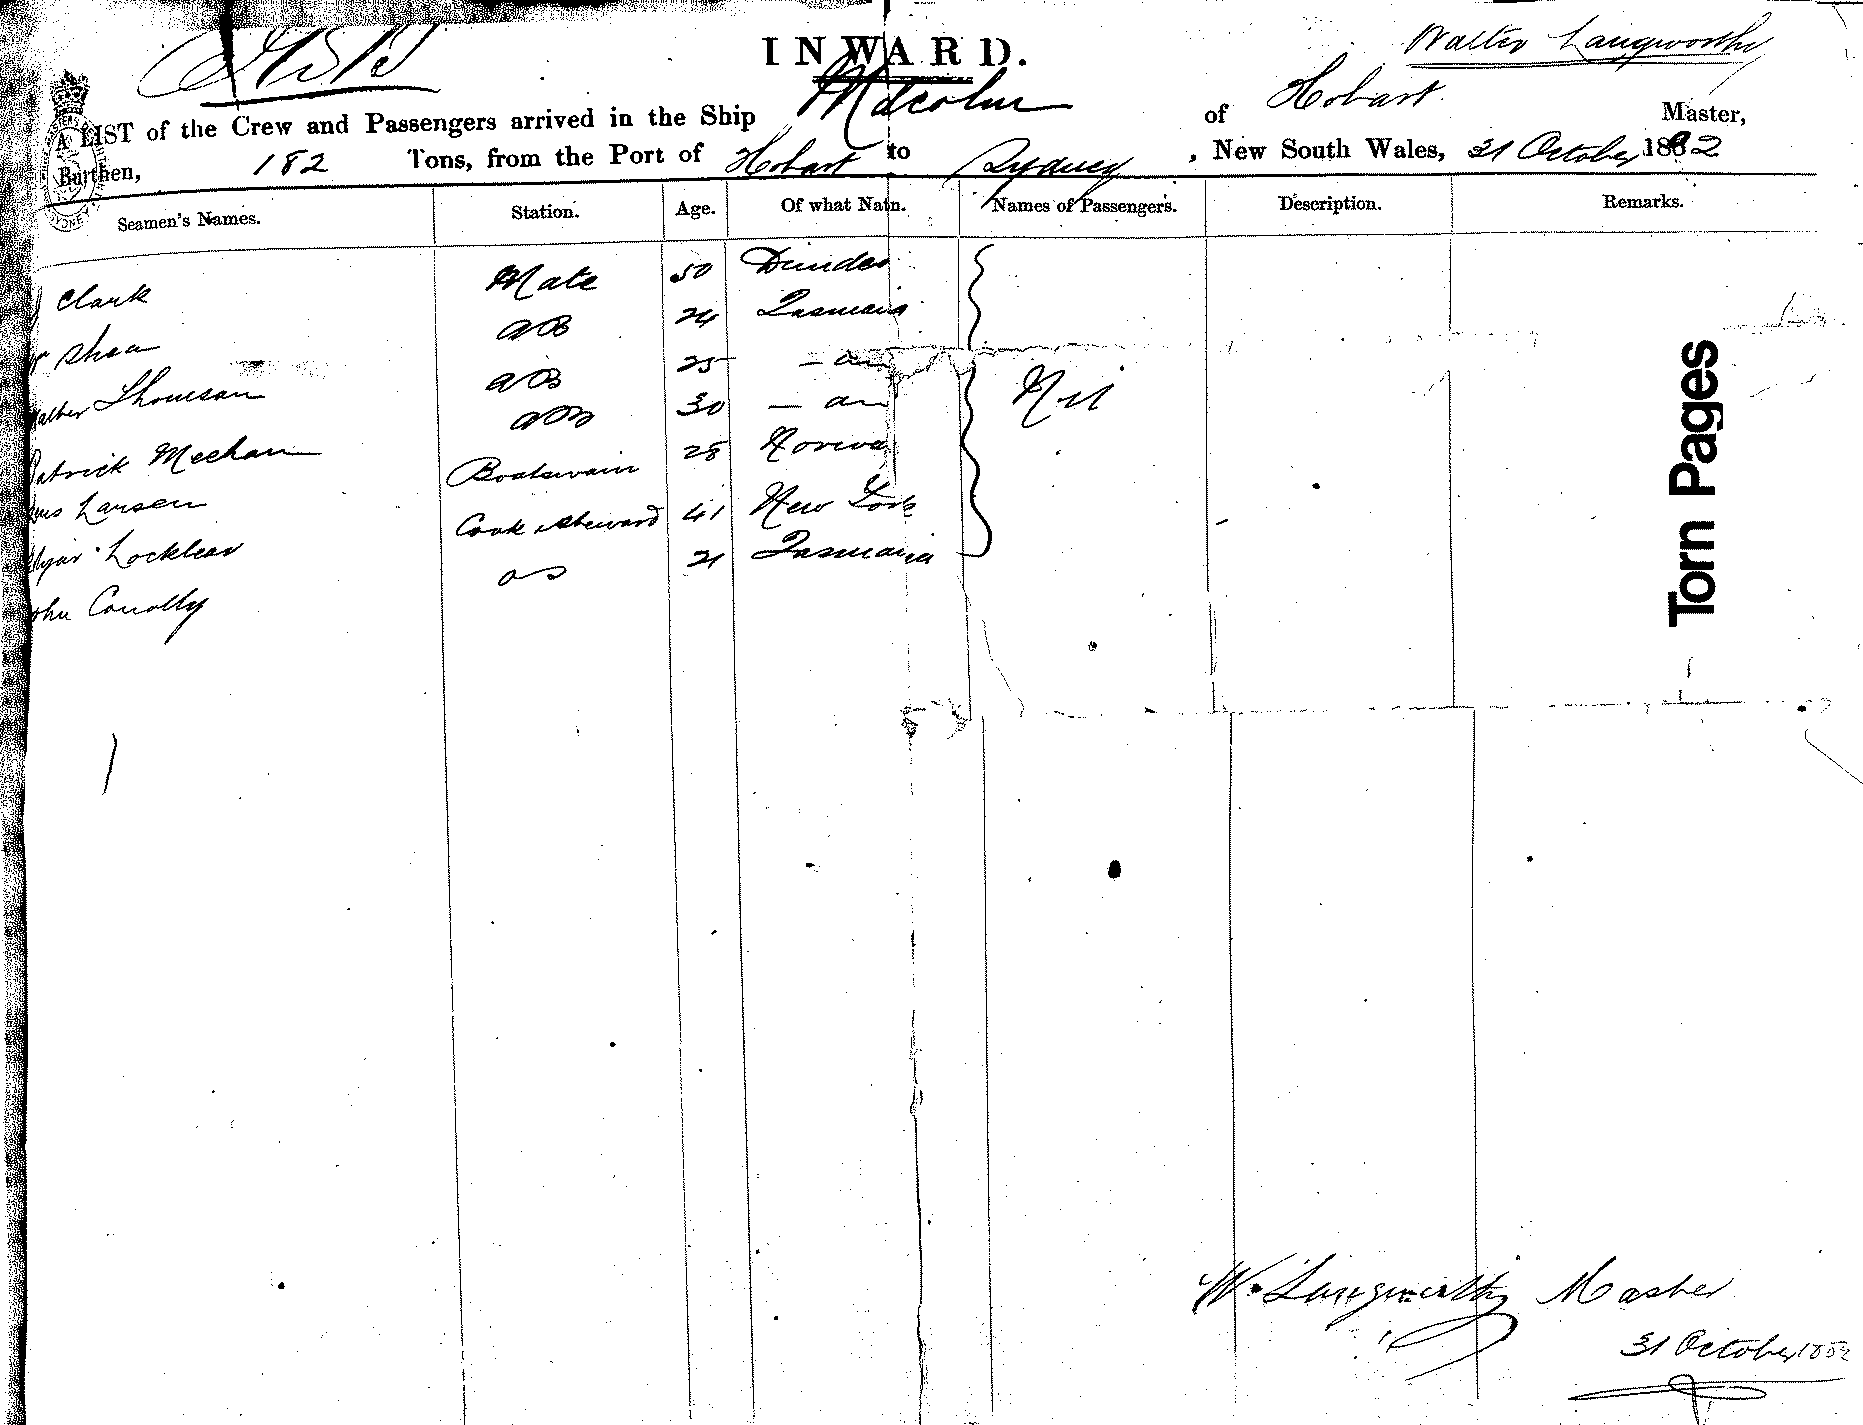 INWARD.
Walter Langworthy
A LIST of the Crew and Passengers arrived in the Ship Malcolm of Hobart Master,
Burthen, 182 Tons, from the Port of Hobart to Sydney, New South Wales, 31 October 1882
Seamen's Names. Station. Age. Of what Natn. Names of Passengers. Description. Remarks.
Clark Mate 50 Dundee
Shea AB 24 Tasmania
Thomson AB 25 - do
Patrick Meehan AB 30 - do Nil
Larsen Boatswain 28 Norway
Locklear Cook & Steward 41 New York
John Conolly OS 21 Tasmania
Torn Pages
W. Langworthy Master
31 October 1882